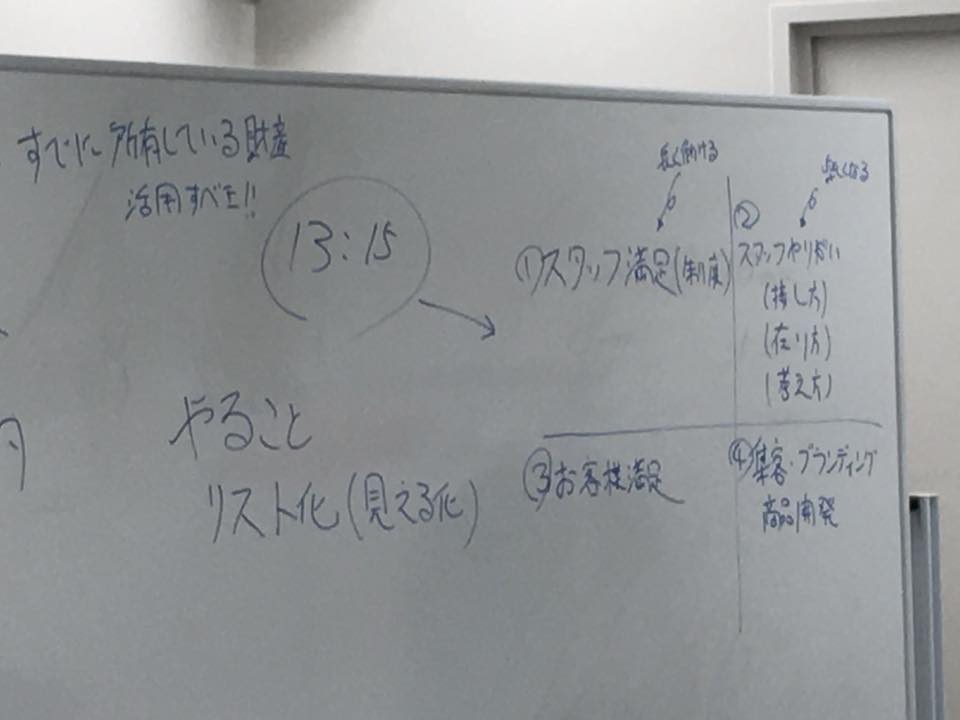 すでに所有している財産
活用すべき!!
13:15
やること
リスト化(見える化)
長く働ける
①スタッフ満足(制度)
良くなる
②
スタッフやりがい
(接し方)
(在り方)
(考え方)
③お客様満足
④集客・ブランディング
商品開発